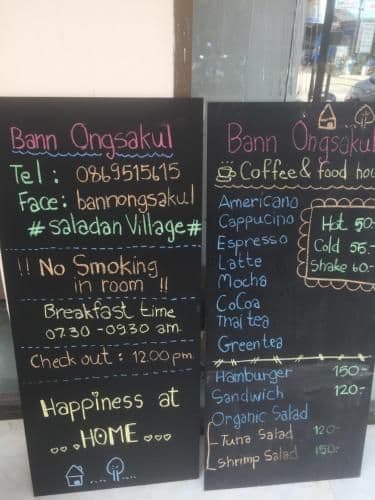 Bann Ongsakul
Tel : 0869515615
Face: bannongsakul
# Saladan Village #
!! No Smoking
in room !!
Breakfast time
07.30 - 09.30 am.
Check out : 12.00 pm.
Happiness at
... HOME ...
Bann Ongsakul
Coffee & food hou
Americano
Cappucino
Espresso
Latte
Mocha
CoCoa
Thai tea
Green tea
Hot 50.-
Cold 55.-
Shake 60.-
Hamburger 150.-
Sandwich 120.-
Organic Salad
- Tuna Salad 120.-
- Shrimp Salad 150.-